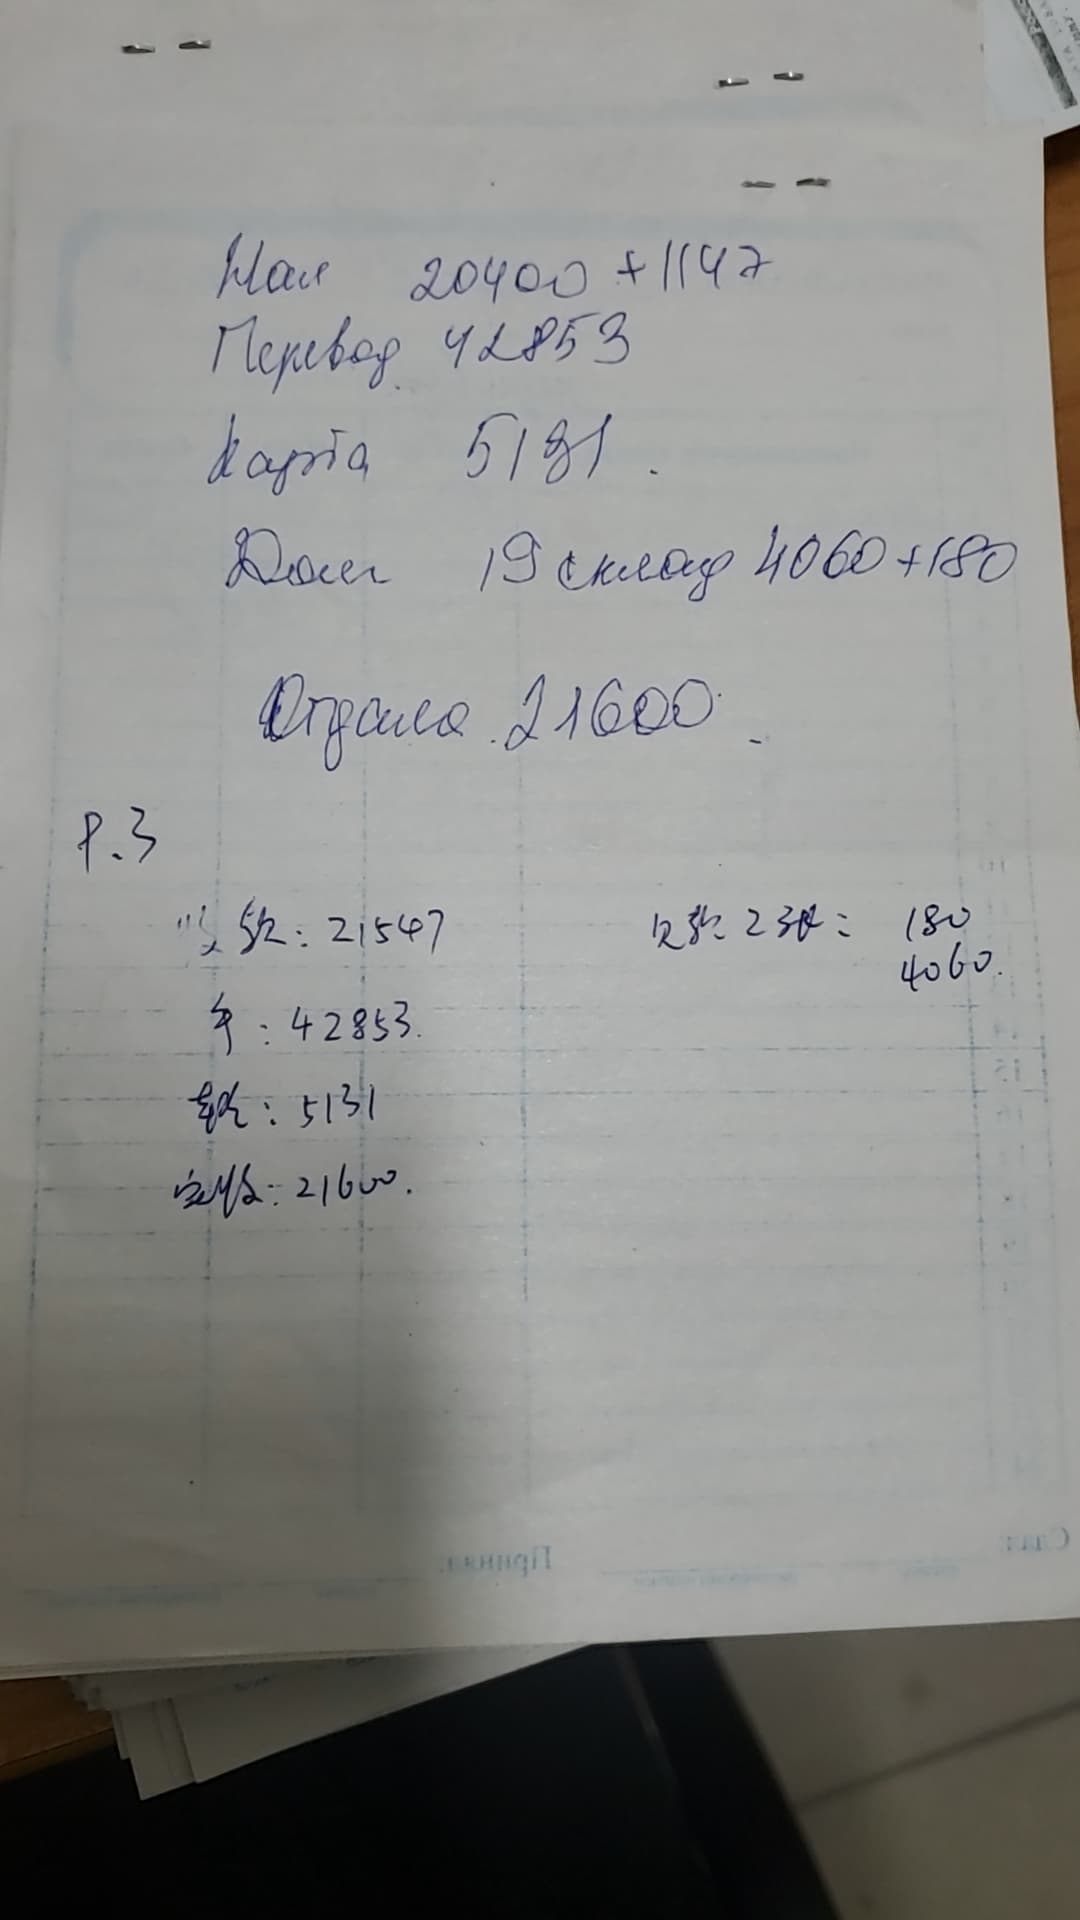 Нал 20400 + 1147
Перевод 42853
Карта 5131.
Долг 19 склад 4060 + 180
Отдала 21600.
P.3
收款: 21547
卡: 42853.
5131
实收: 21600.
欠款 2张: 180
4060.
Принял:
Сдал: